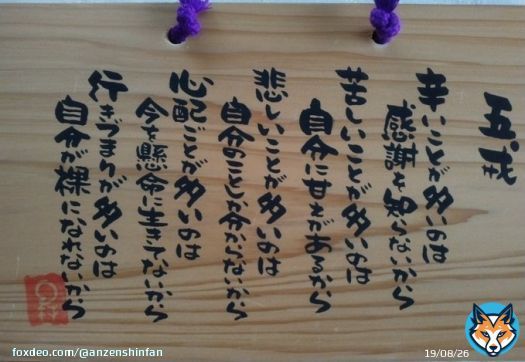 五戒
辛いことが多いのは
感謝を知らないから
苦しいことが多いのは
自分に甘えがあるから
悲しいことが多いのは
自分のことが分からないから
心配ごとが多いのは
今を懸命に生きてないから
行きづまりが多いのは
自分が裸になれないから
foxdeo.com/@anzenshinfan
19/08/26